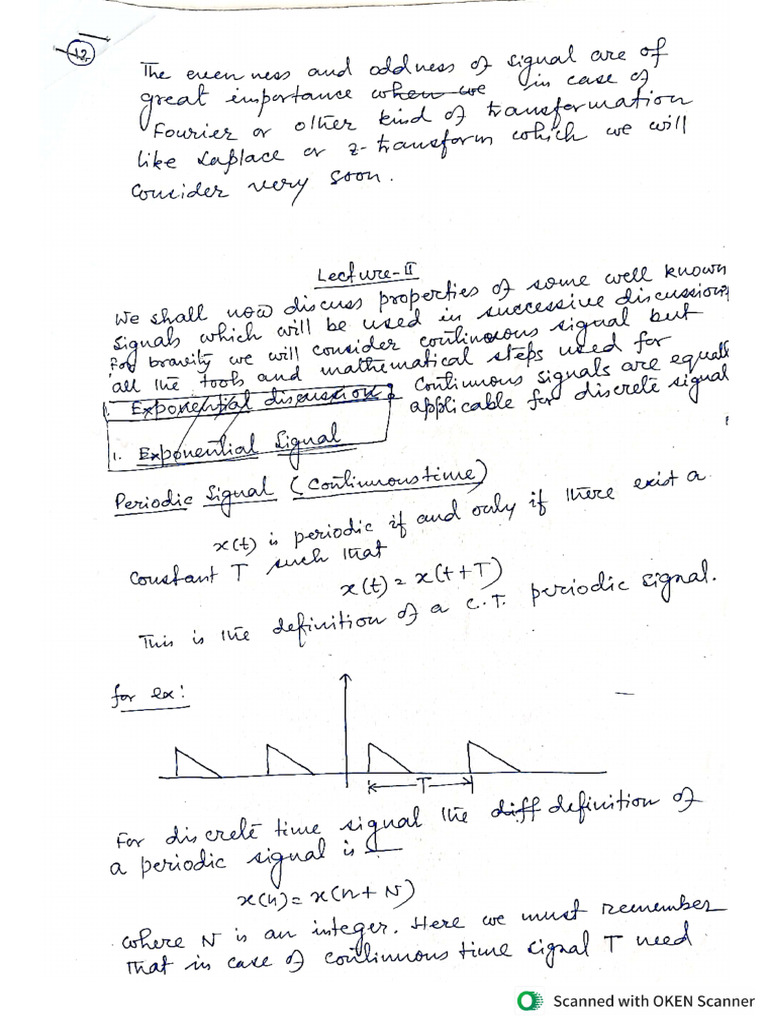 12
The evenness and oddness of signal are of
great importance when we in case of
Fourier or other kind of transformation
like Laplace or z-transform which we will
consider very soon.
Lecture-II
We shall now discuss properties of some well known
signals which will be used in successive discussions,
for bravity we will consider continuous signal but
all the tools and mathematical steps used for
1. Exponential discussion: Continuous signals are equall
applicable for discrete signal
1. Exponential Signal
Periodic Signal (Continuous time)
x(t) is periodic if and only if there exist a
constant T such that
x(t) = x(t+T)
This is the definition of a C.T. periodic signal.
for ex:
T
For discrete time signal the diff definition of
a periodic signal is
x(n) = x(n+N)
where N is an integer. Here we must remember
that in case of continuous time signal T need
Scanned with OKEN Scanner